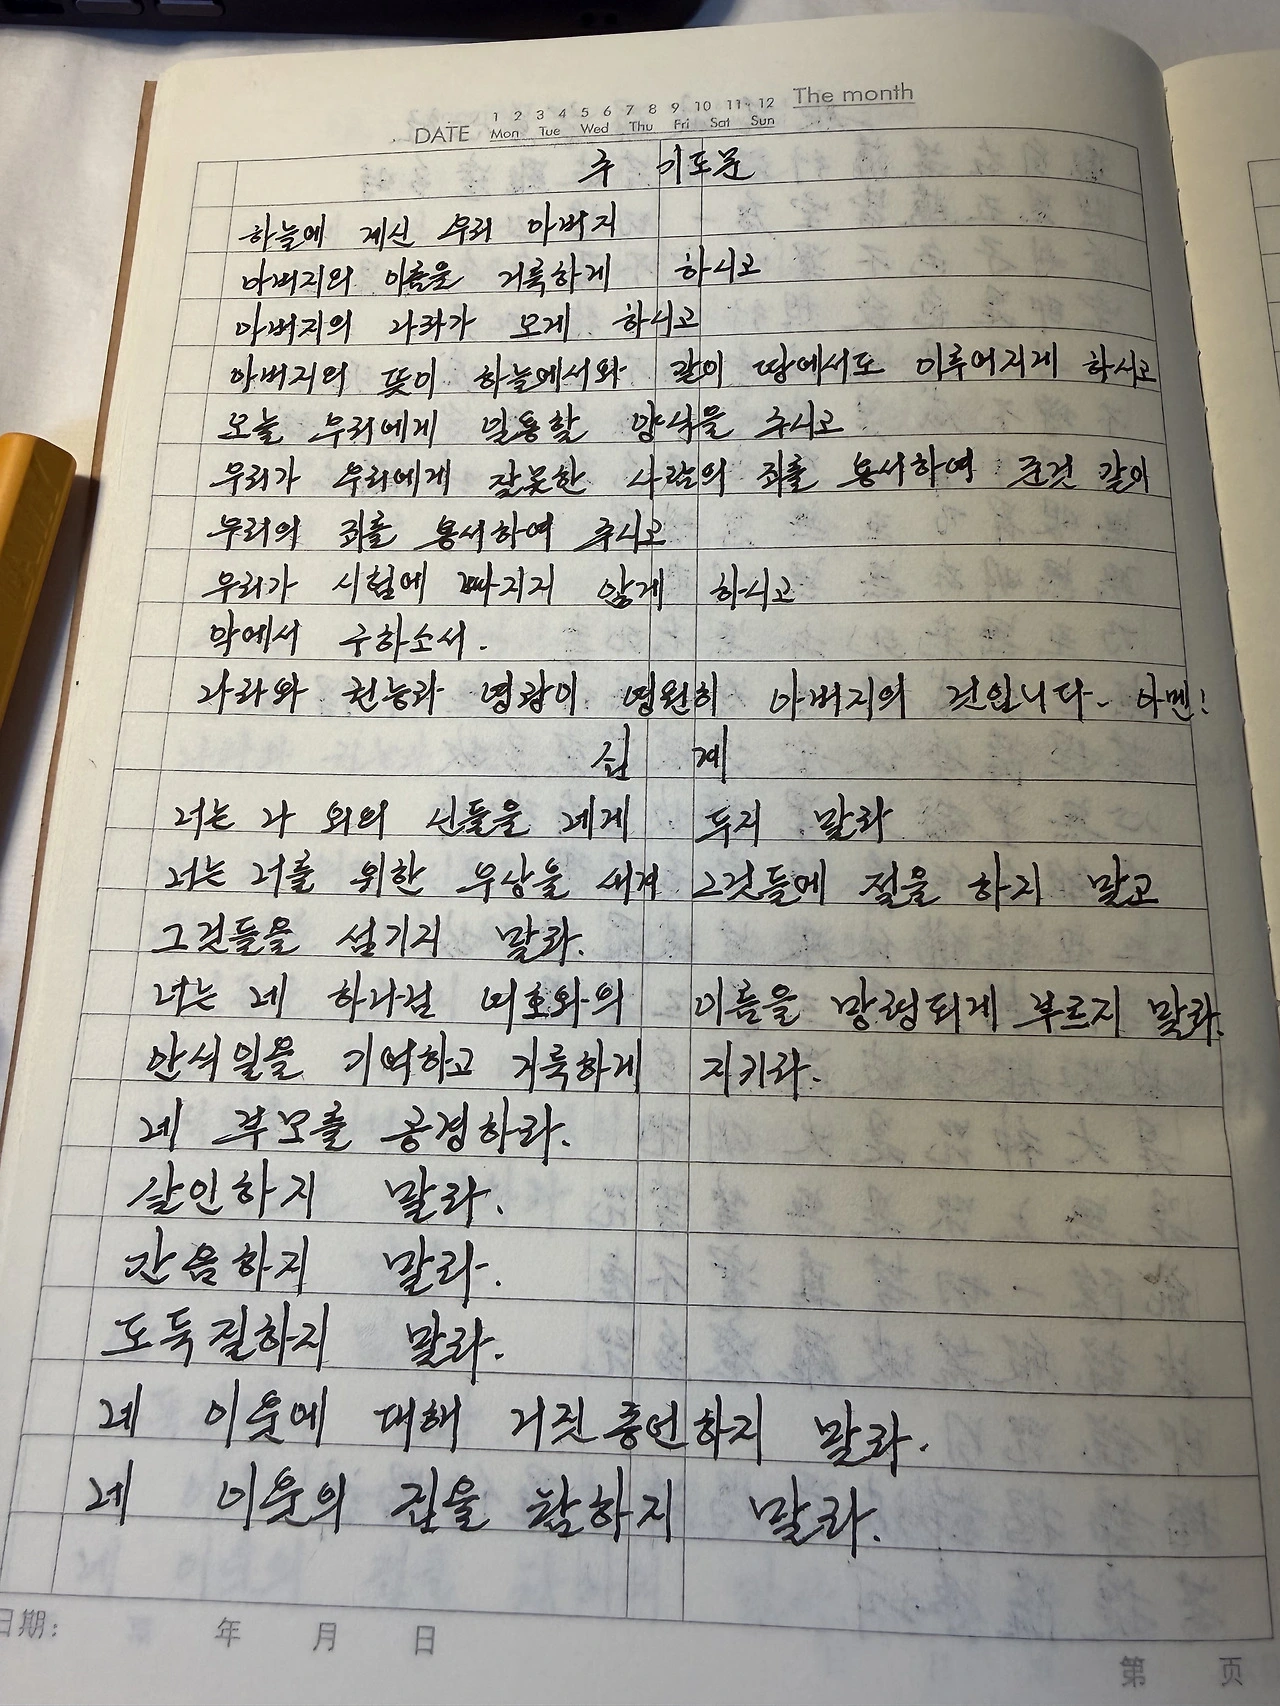 DATE 1 2 3 4 5 6 7 8 9 10 11 12 The month
Mon Tue Wed Thu Fri Sat Sun
주 기도문
하늘에 계신 우리 아버지
아버지의 이름을 거룩하게 하시고
아버지의 나라가 오게 하시고
아버지의 뜻이 하늘에서와 같이 땅에서도 이루어지게 하시고
오늘 우리에게 일용할 양식을 주시고
우리가 우리에게 잘못한 사람의 죄를 용서하여 준것 같이
우리의 죄를 용서하여 주시고
우리가 시험에 빠지지 않게 하시고
악에서 구하소서.
나라와 권능과 영광이 영원히 아버지의 것입니다. 아멘!
십 계
너는 나 외의 신들을 네게 두지 말라
너는 너를 위한 우상을 새겨 그것들에 절을 하지 말고
그것들을 섬기지 말라.
너는 네 하나님 여호와의 이름을 망령되게 부르지 말라.
안식일을 기억하고 거룩하게 지키라.
네 부모를 공경하라.
살인하지 말라.
간음하지 말라.
도둑질하지 말라.
네 이웃에 대해 거짓증언하지 말라.
네 이웃의 집을 탐하지 말라.
日期: 年 月 日
第 页